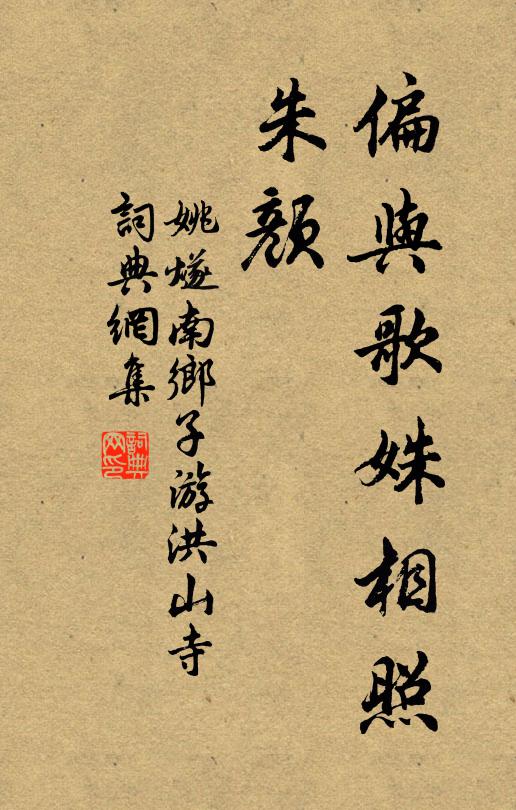 偏與歌姝相照
朱顏
姚燧南鄉子游洪山寺
詞典網集
詞典
网印